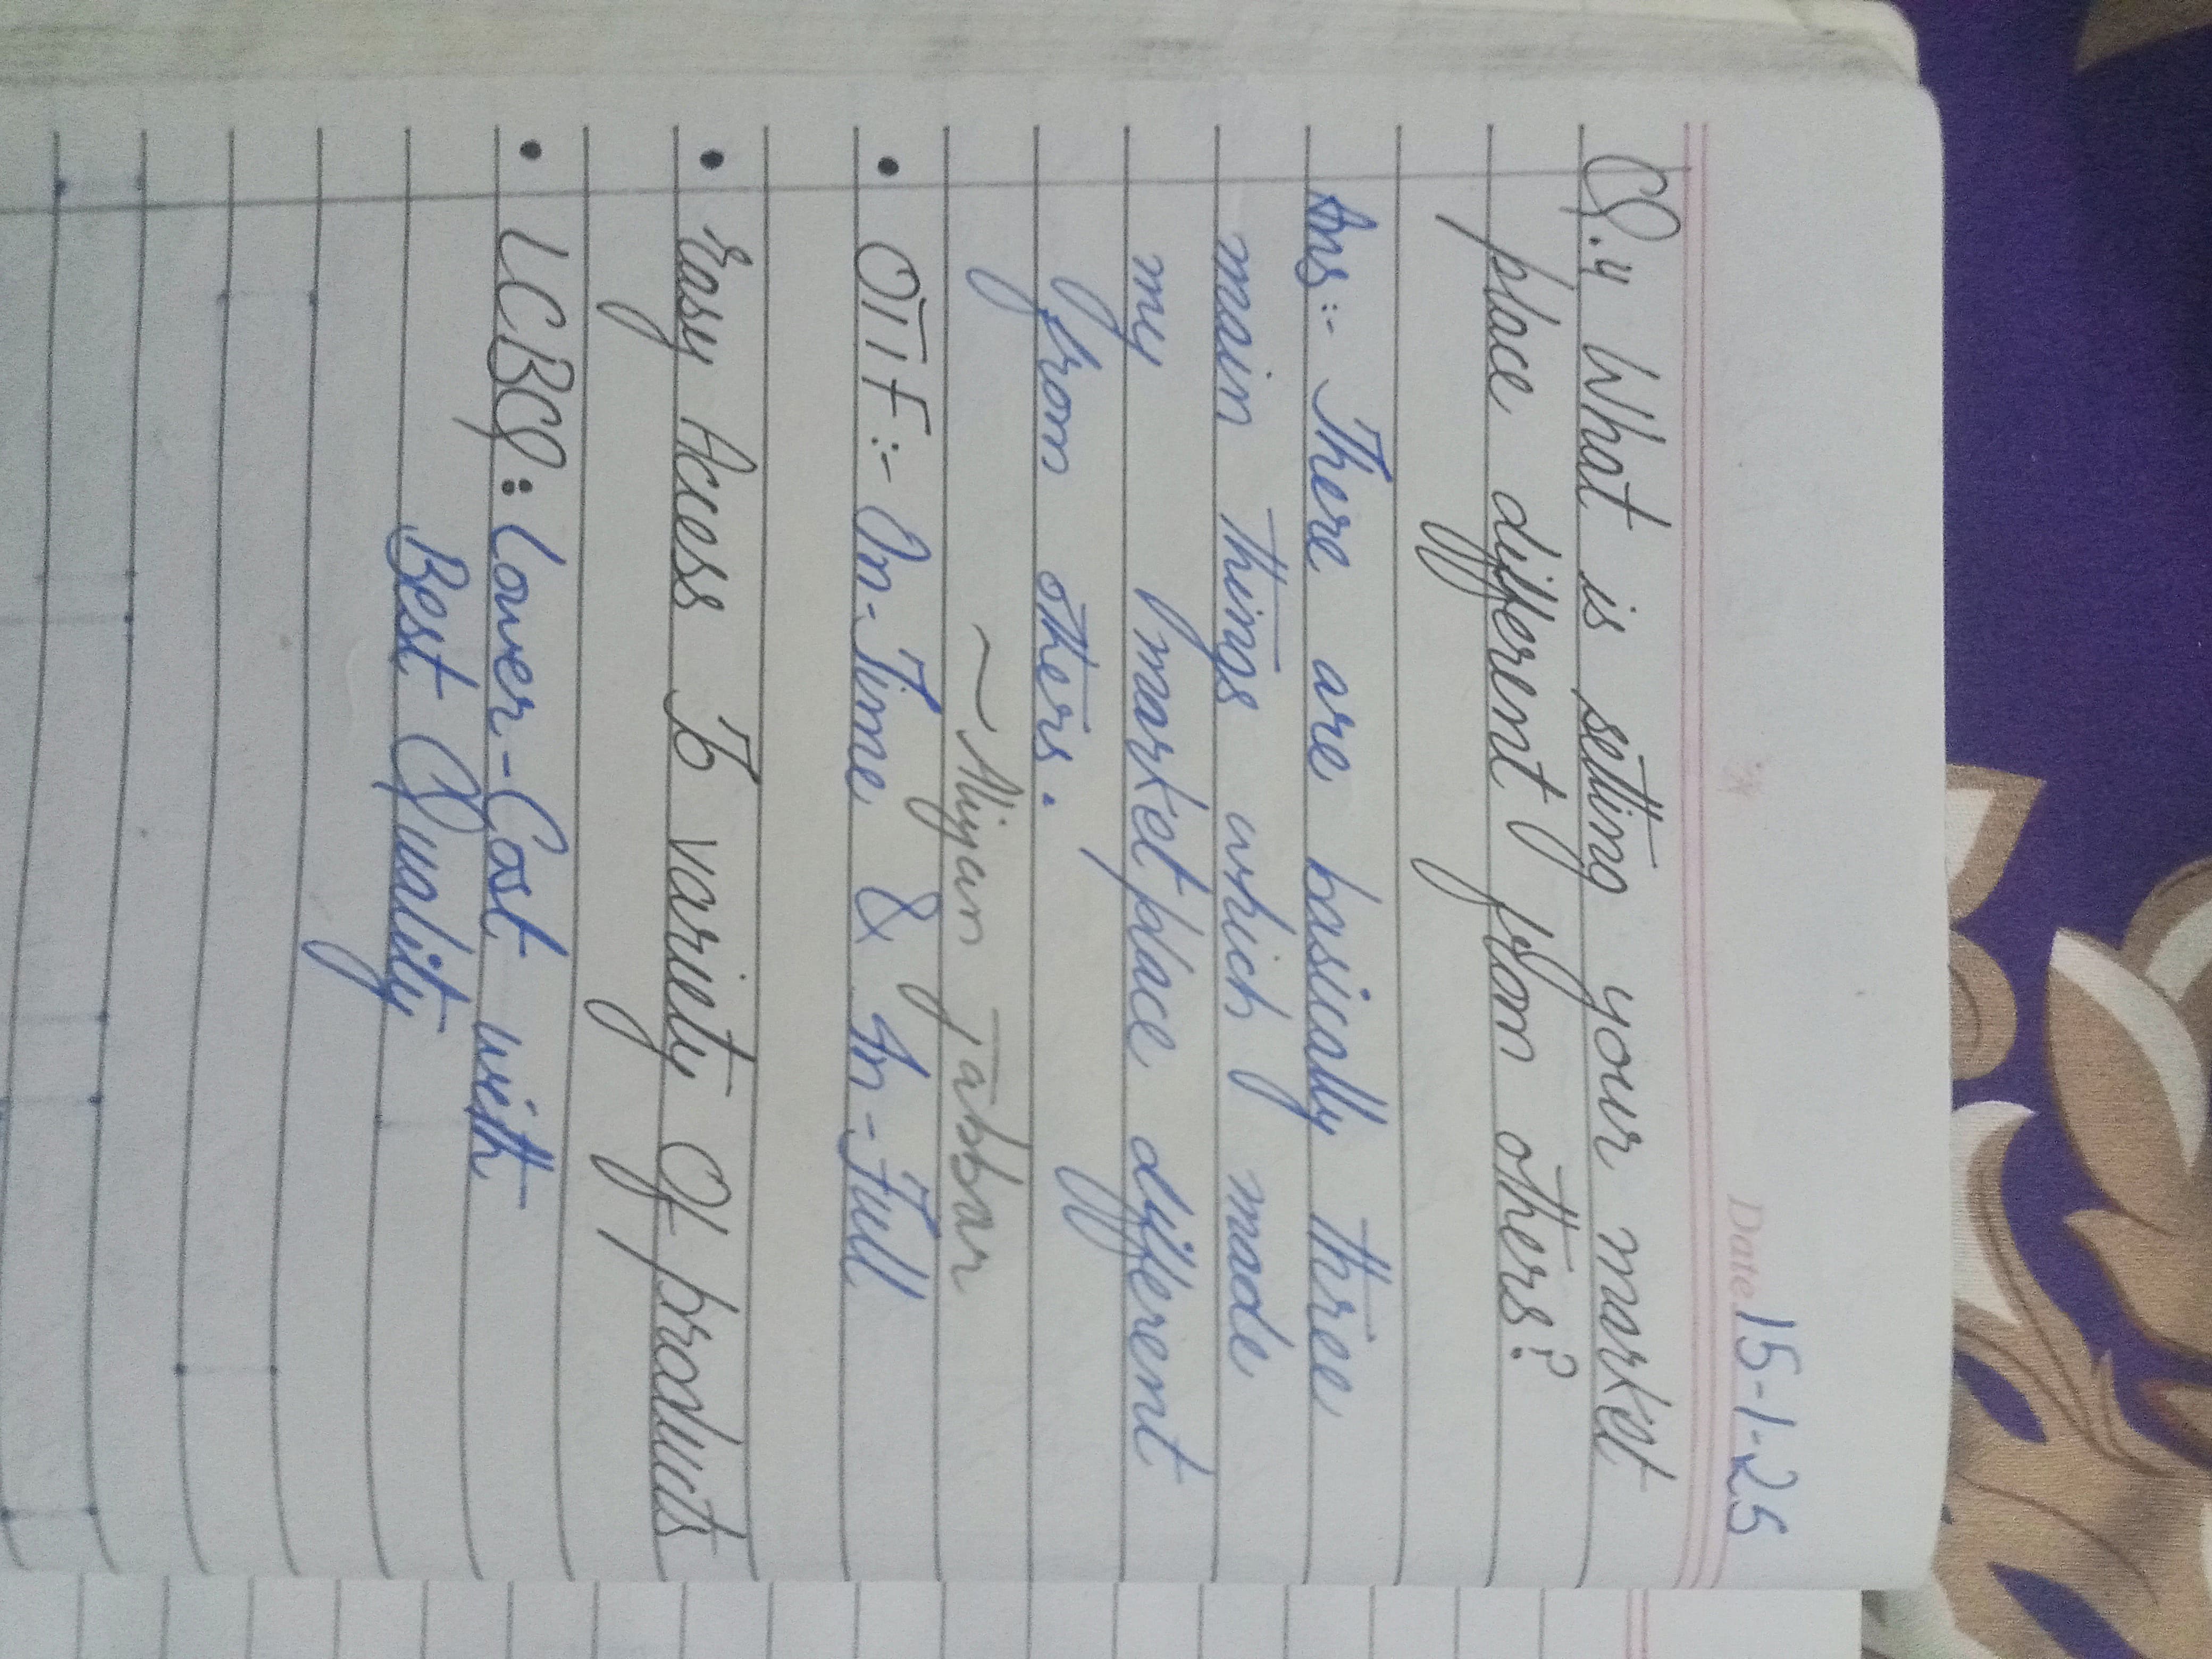 Date 15-1-25
Q.4 What is setting your market
place different from others?
Ans:- There are basically three
main things which made
my marketplace different
from others.
~Aliyan Jabbar
• OTIF:- On-Time & In-Full
• Easy Access To variety Of products
• LCBQ: Lower-Cost with
Best Quality